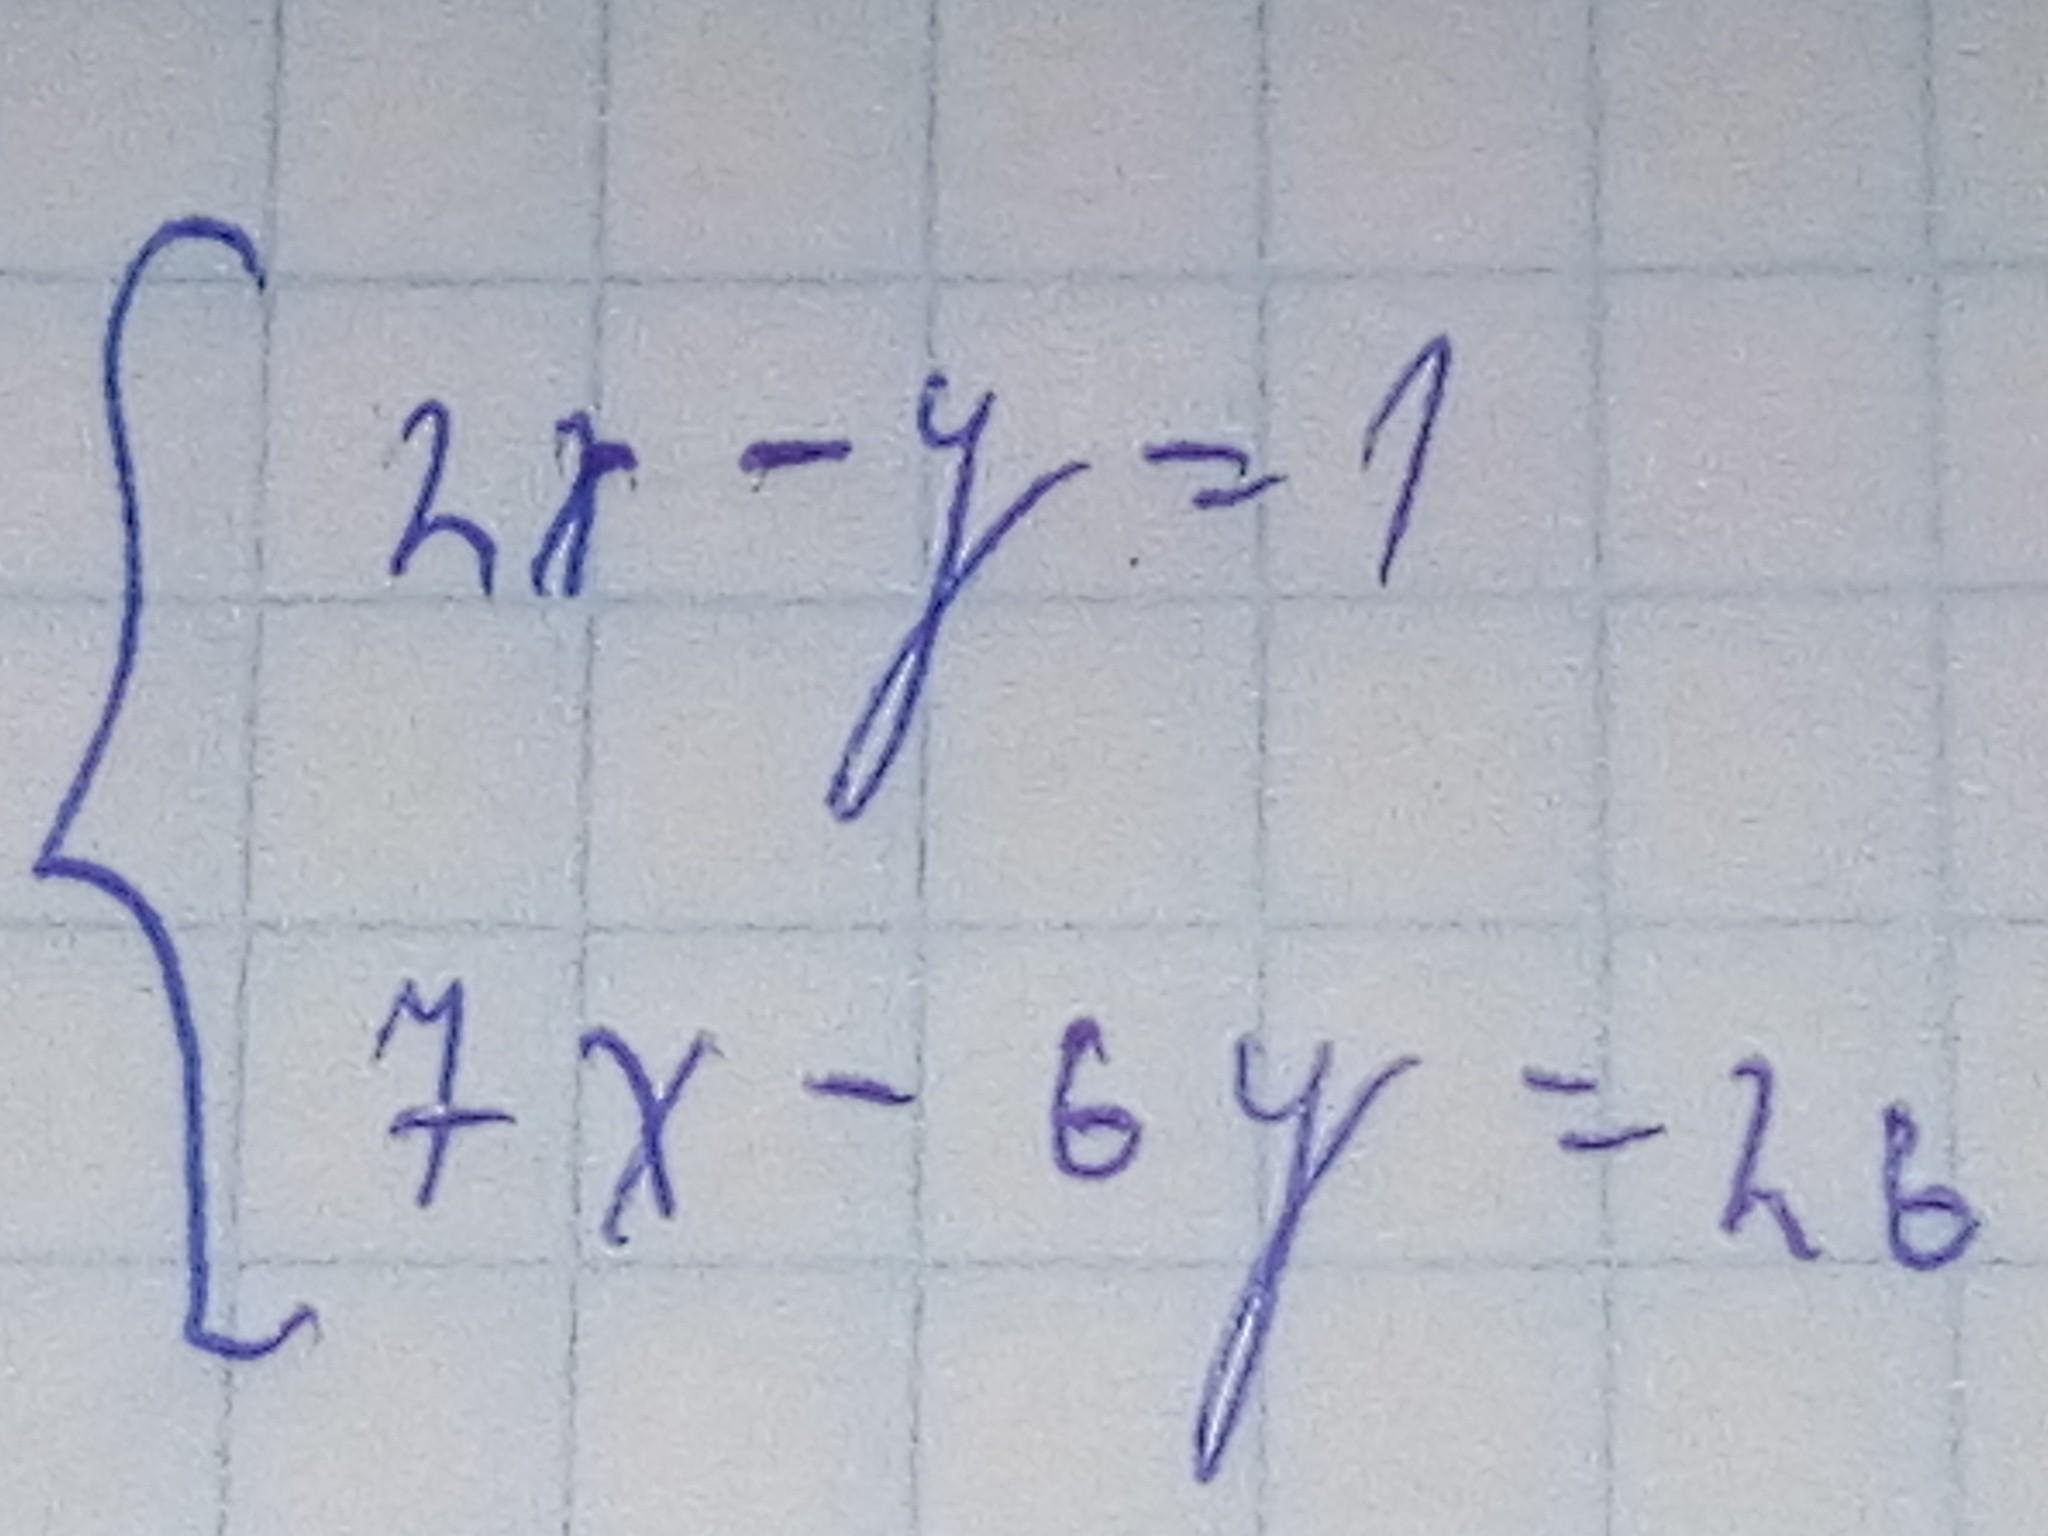 2x - y = 1
7x - 6y = 26